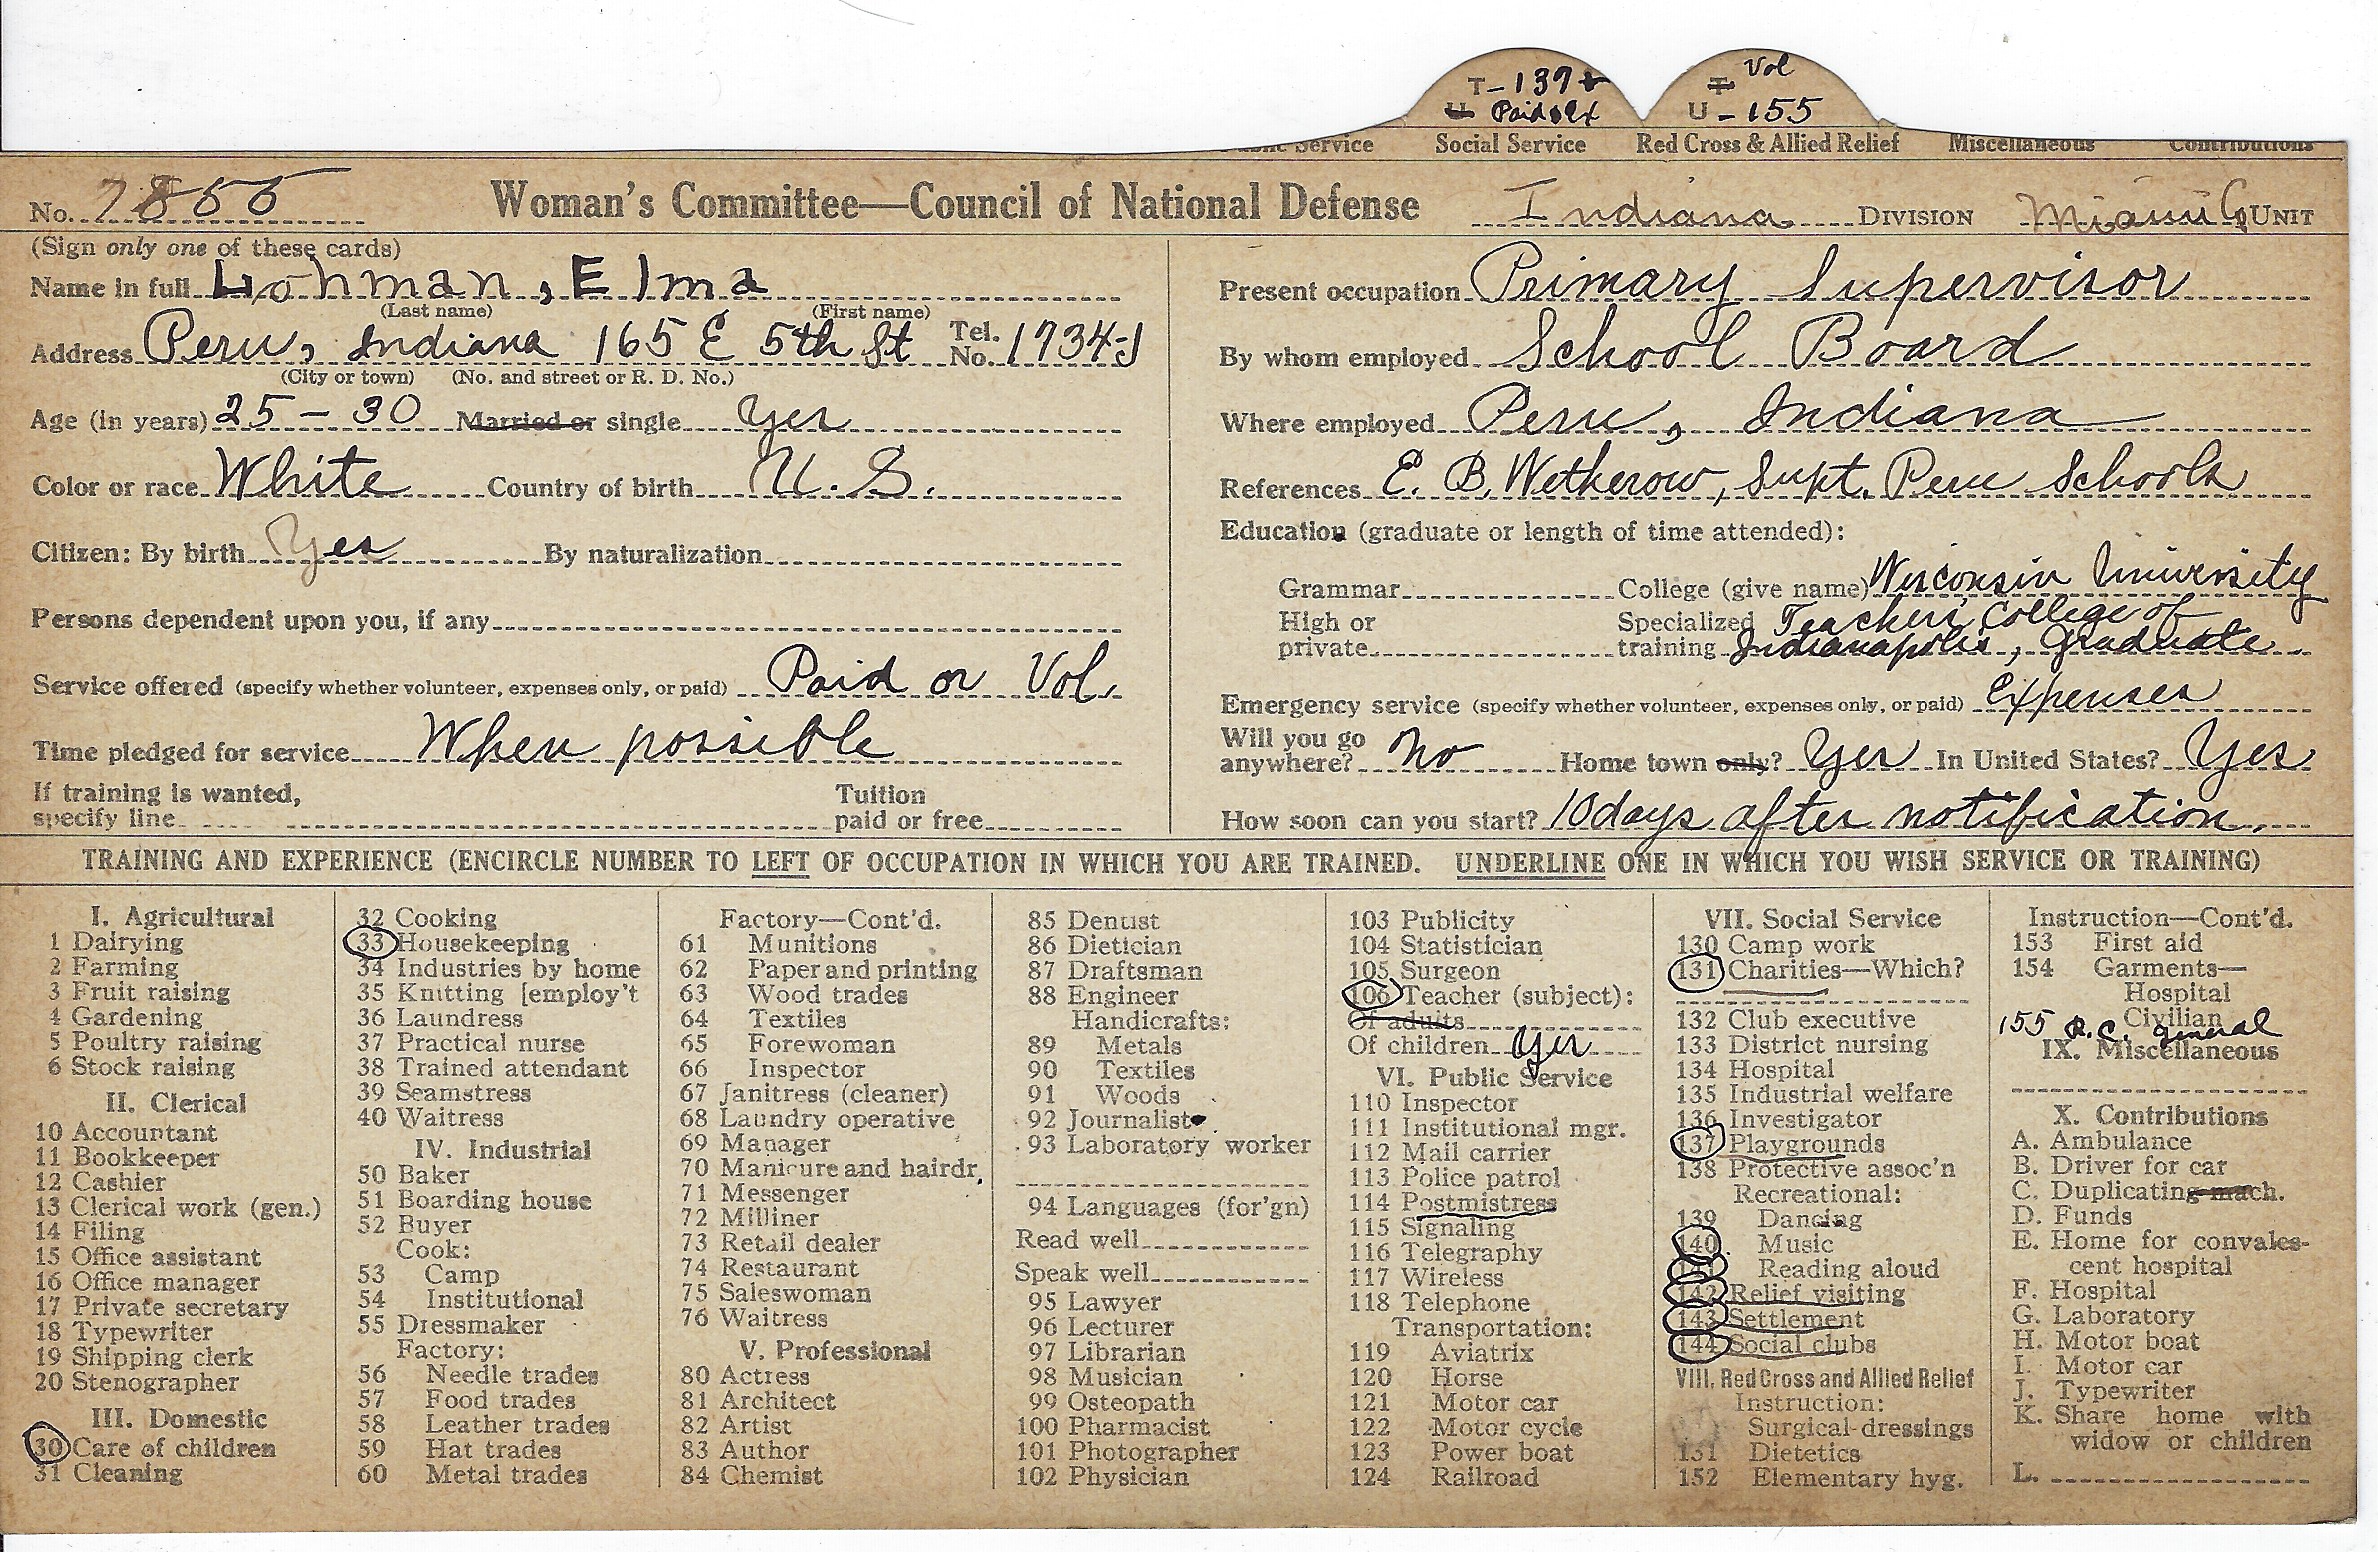 T - 137 +
U Paid & Ex
T Vol
U - 155
Service Social Service Red Cross & Allied Relief Miscellaneous Contributions
No. 7855 Woman's Committee—Council of National Defense Indiana DIVISION Miami Co UNIT
(Sign only one of these cards)
Name in full Lohman, Elma
(Last name) (First name)
Address Peru, Indiana 165 E 5th St Tel. No. 1734-J
(City or town) (No. and street or R. D. No.)
Age (in years) 25 - 30 Married or single Yes
Color or race White Country of birth U. S.
Citizen: By birth Yes By naturalization
Persons dependent upon you, if any
Service offered (specify whether volunteer, expenses only, or paid) Paid or Vol.
Time pledged for service When possible
If training is wanted, Tuition
specify line paid or free
Present occupation Primary Supervisor
By whom employed School Board
Where employed Peru, Indiana
References E. B. Wetherow, Supt. Peru Schools
Education (graduate or length of time attended):
Grammar College (give name) Wisconsin University
High or Specialized Teachers College of
private training Indianapolis, Graduate
Emergency service (specify whether volunteer, expenses only, or paid) Expenses
Will you go
anywhere? No Home town only? Yes In United States? Yes
How soon can you start? 10 days after notification.
TRAINING AND EXPERIENCE (ENCIRCLE NUMBER TO LEFT OF OCCUPATION IN WHICH YOU ARE TRAINED. UNDERLINE ONE IN WHICH YOU WISH SERVICE OR TRAINING)
I. Agricultural
1 Dairying
2 Farming
3 Fruit raising
4 Gardening
5 Poultry raising
6 Stock raising
II. Clerical
10 Accountant
11 Bookkeeper
12 Cashier
13 Clerical work (gen.)
14 Filing
15 Office assistant
16 Office manager
17 Private secretary
18 Typewriter
19 Shipping clerk
20 Stenographer
III. Domestic
30 Care of children
31 Cleaning
32 Cooking
33 Housekeeping
34 Industries by home
35 Knitting [employ't
36 Laundress
37 Practical nurse
38 Trained attendant
39 Seamstress
40 Waitress
IV. Industrial
50 Baker
51 Boarding house
52 Buyer
Cook:
53 Camp
54 Institutional
55 Dressmaker
Factory:
56 Needle trades
57 Food trades
58 Leather trades
59 Hat trades
60 Metal trades
Factory—Cont'd.
61 Munitions
62 Paper and printing
63 Wood trades
64 Textiles
65 Forewoman
66 Inspector
67 Janitress (cleaner)
68 Laundry operative
69 Manager
70 Manicure and hairdr.
71 Messenger
72 Milliner
73 Retail dealer
74 Restaurant
75 Saleswoman
76 Waitress
V. Professional
80 Actress
81 Architect
82 Artist
83 Author
84 Chemist
85 Dentist
86 Dietician
87 Draftsman
88 Engineer
Handicrafts:
89 Metals
90 Textiles
91 Woods
92 Journalist
93 Laboratory worker
94 Languages (for'gn)
Read well
Speak well
95 Lawyer
96 Lecturer
97 Librarian
98 Musician
99 Osteopath
100 Pharmacist
101 Photographer
102 Physician
103 Publicity
104 Statistician
105 Surgeon
106 Teacher (subject):
Of adults
Of children Yes
VI. Public Service
110 Inspector
111 Institutional mgr.
112 Mail carrier
113 Police patrol
114 Postmistress
115 Signaling
116 Telegraphy
117 Wireless
118 Telephone
Transportation:
119 Aviatrix
120 Horse
121 Motor car
122 Motor cycle
123 Power boat
124 Railroad
VII. Social Service
130 Camp work
131 Charities—Which?
132 Club executive
133 District nursing
134 Hospital
135 Industrial welfare
136 Investigator
137 Playgrounds
138 Protective assoc'n
Recreational:
139 Dancing
140 Music
141 Reading aloud
142 Relief visiting
143 Settlement
144 Social clubs
VIII. Red Cross and Allied Relief
Instruction:
Surgical dressings
151 Dietetics
152 Elementary hyg.
Instruction—Cont'd.
153 First aid
154 Garments—
Hospital
Civilian
155 R. C. general
IX. Miscellaneous
X. Contributions
A. Ambulance
B. Driver for car
C. Duplicating mach.
D. Funds
E. Home for convales-
cent hospital
F. Hospital
G. Laboratory
H. Motor boat
I. Motor car
J. Typewriter
K. Share home with
widow or children
L.